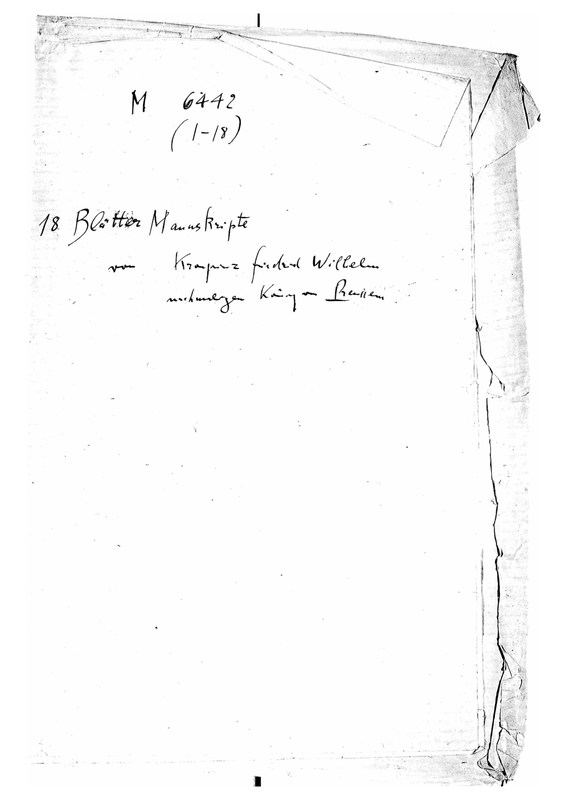 M 6442
(1-18)
18 Blätter Manuskripte
von Kronprinz Friedrich Wilhelm
nachmaligen König von Preussen